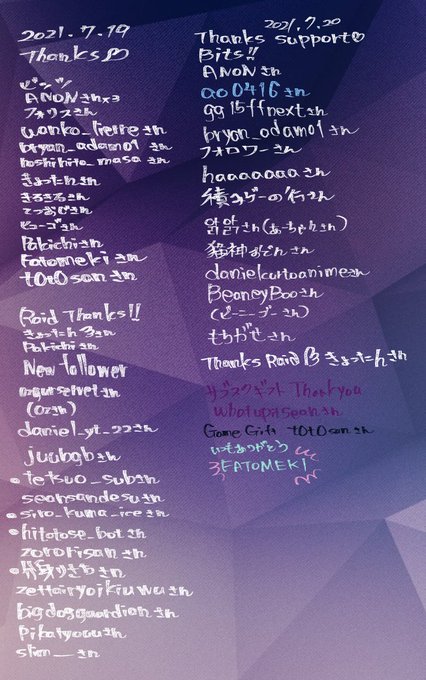 2021.7.19
Thanks
ビッツ
ANONさん×3
フォリスさん
wanko_pierreさん
bryan_adamo1 さん
hoshihito_masa さん
きょったんさん
きろきろさん
てつおじさん
ピューゴさん
Pokichiさん
Fatomeki さん
t0t0 san さん
Raid Thanks!!
きょったんさん
Pokichiさん
New follower
さん
(Ozさん)
daniel_yt_22さん
juubgbさん
tetsuo_subさん
seansandesuさん
siro_kuma_iceさん
hitotose_botさん
zororisanさん
さん
zettairyoikiuwuさん
bigdogguardianさん
Pikalyouuさん
slim__さん
2021.7.20
Thanks support♡
Bits!!
ANONさん
ao0416さん
gg15ffnextさん
bryan_adamo1さん
フォロワーさん
haaaaaaaさん
積みゲーの行さん
さん(あーちゃんさん)
猫神おどんさん
danielcartoanimeさん
BeaneyBooさん
(ビーニーブーさん)
もちがせさん
Thanks Raid きょったんさん
サブスクギフト Thankyou
whatupitseanさん
Game Gift t0t0sanさん
いつもありがとう
FATOMEKI